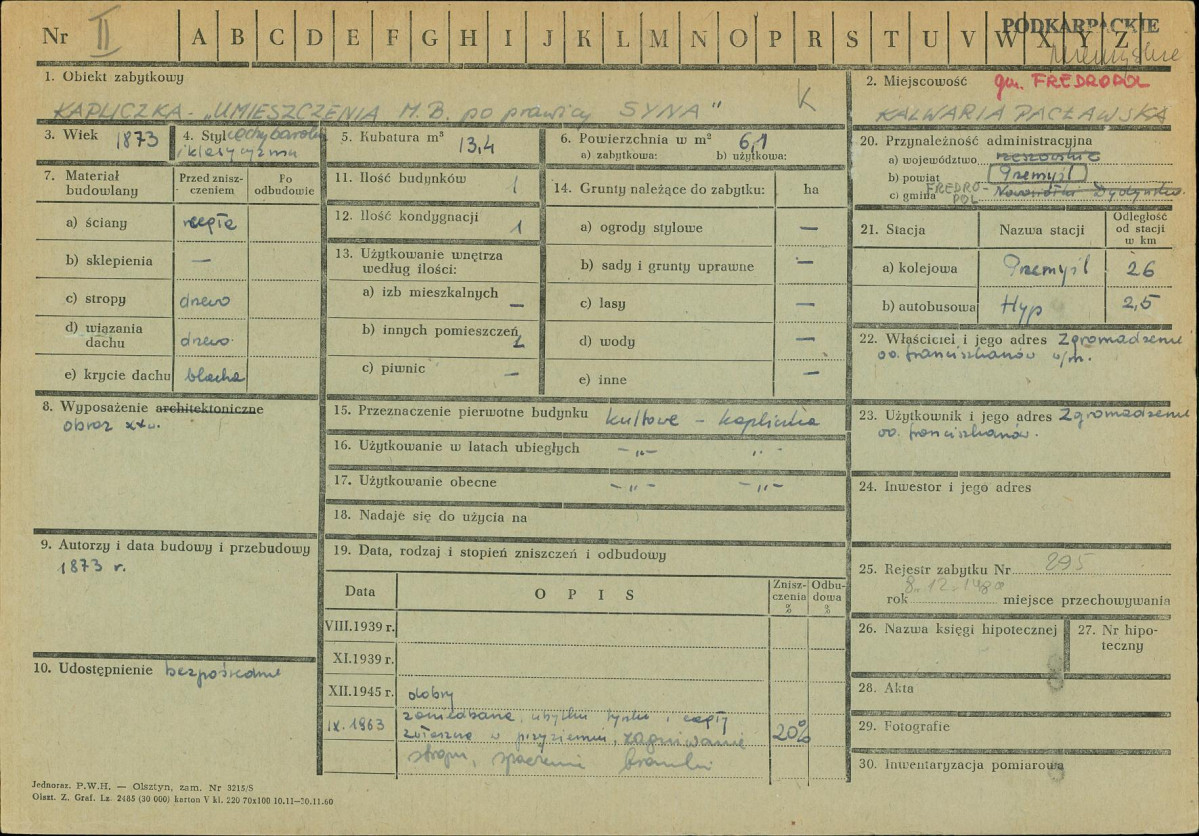 PODKARPACKIE
Nr II A B C D E F G H I J K L M N O P R S T U V W X Y Z
1. Obiekt zabytkowy
KAPLICZKA - „UMIESZCZENIA M.B. po prawicy SYNA" K
2. Miejscowość gm. FREDROPOL
KALWARIA PACŁAWSKA
3. Wiek 1873
4. Styl cechy baroku
i klasycyzmu
5. Kubatura m³ 13,4
6. Powierzchnia w m² 6,1
a) zabytkowa: b) użytkowa:
7. Materiał
budowlany
Przed znisz-
czeniem
Po
odbudowie
a) ściany cegła
b) sklepienia —
c) stropy drewo
d) wiązania
dachu drewo
e) krycie dachu blacha
8. Wyposażenie architektoniczne
obraz
9. Autorzy i data budowy i przebudowy
1873 r.
10. Udostępnienie bezpośrednie
11. Ilość budynków 1
12. Ilość kondygnacji 1
13. Użytkowanie wnętrza
według ilości:
a) izb mieszkalnych —
b) innych pomieszczeń 1
c) piwnic —
14. Grunty należące do zabytku: ha
a) ogrody stylowe —
b) sady i grunty uprawne —
c) lasy —
d) wody —
e) inne —
15. Przeznaczenie pierwotne budynku kultowe - kapliczka
16. Użytkowanie w latach ubiegłych -„- „
17. Użytkowanie obecne -„- -„-
18. Nadaje się do użycia na
19. Data, rodzaj i stopień zniszczeń i odbudowy
Data OPIS Znisz-
czenia
% Odbu-
dowa
%
VIII.1939 r.
XI.1939 r.
XII.1945 r. dobry
IX.1963 zaniedbana, ubytki tynku i cegły
w przyziemiu, zagniwanie 20%
stropu, spaczenie bramki
20. Przynależność administracyjna
a) województwo rzeszowskie
b) powiat Przemyśl
c) gmina FREDRO-
POL Nowosiółki Dydyńskie
21. Stacja Nazwa stacji Odległość
od stacji
w km
a) kolejowa Przemyśl 26
b) autobusowa Hyp 2,5
22. Właściciel i jego adres Zgromadzenie
oo. franciszkanów w/m.
23. Użytkownik i jego adres Zgromadzenie
oo. franciszkanów.
24. Inwestor i jego adres
25. Rejestr zabytku Nr 295
rok miejsce przechowywania
26. Nazwa księgi hipotecznej
27. Nr hipo-
teczny
28. Akta
29. Fotografie
30. Inwentaryzacja pomiarowa
Jednoraz. P.W.H. — Olsztyn, zam. Nr 3215/S
Olszt. Z. Graf. Lz. 2485 (30 000) karton V kl. 220 70x100 10.II—20.11.60